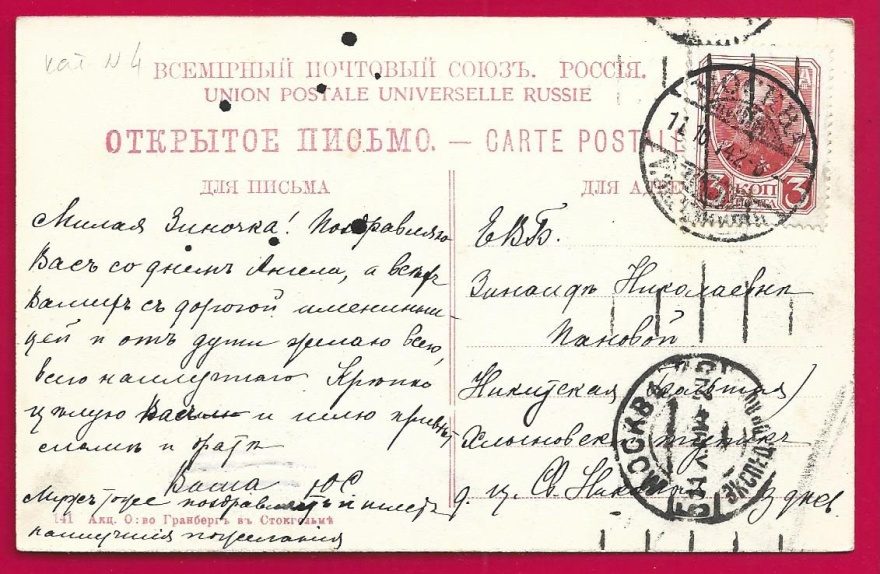 кат N 4
ВСЕМІРНЫЙ ПОЧТОВЫЙ СОЮЗЪ. РОССІЯ.
UNION POSTALE UNIVERSELLE RUSSIE
ОТКРЫТОЕ ПИСЬМО. — CARTE POSTALE
ДЛЯ ПИСЬМА
Милая Зиночка! Поздравляю
Васъ со днемъ Ангела, а
съ дорогой именинни-
цей и отъ души желаю всего,
всего наилучшаго. Крѣпко
цѣлую и шлю привѣтъ
и
Ваша ЮС
Мужъ тоже поздравляетъ и шлетъ
наилучшія пожеланія
141 Акц. О:во Гранбергъ въ Стокгольмѣ
ДЛЯ
Е.В.Б.
Зинаидѣ Николаевнѣ
Пановой
Никитская (Большая)
Хлыновскій тупикъ
д. ц. Св.
МОСКВА
3 КОП 3
МОСКВА